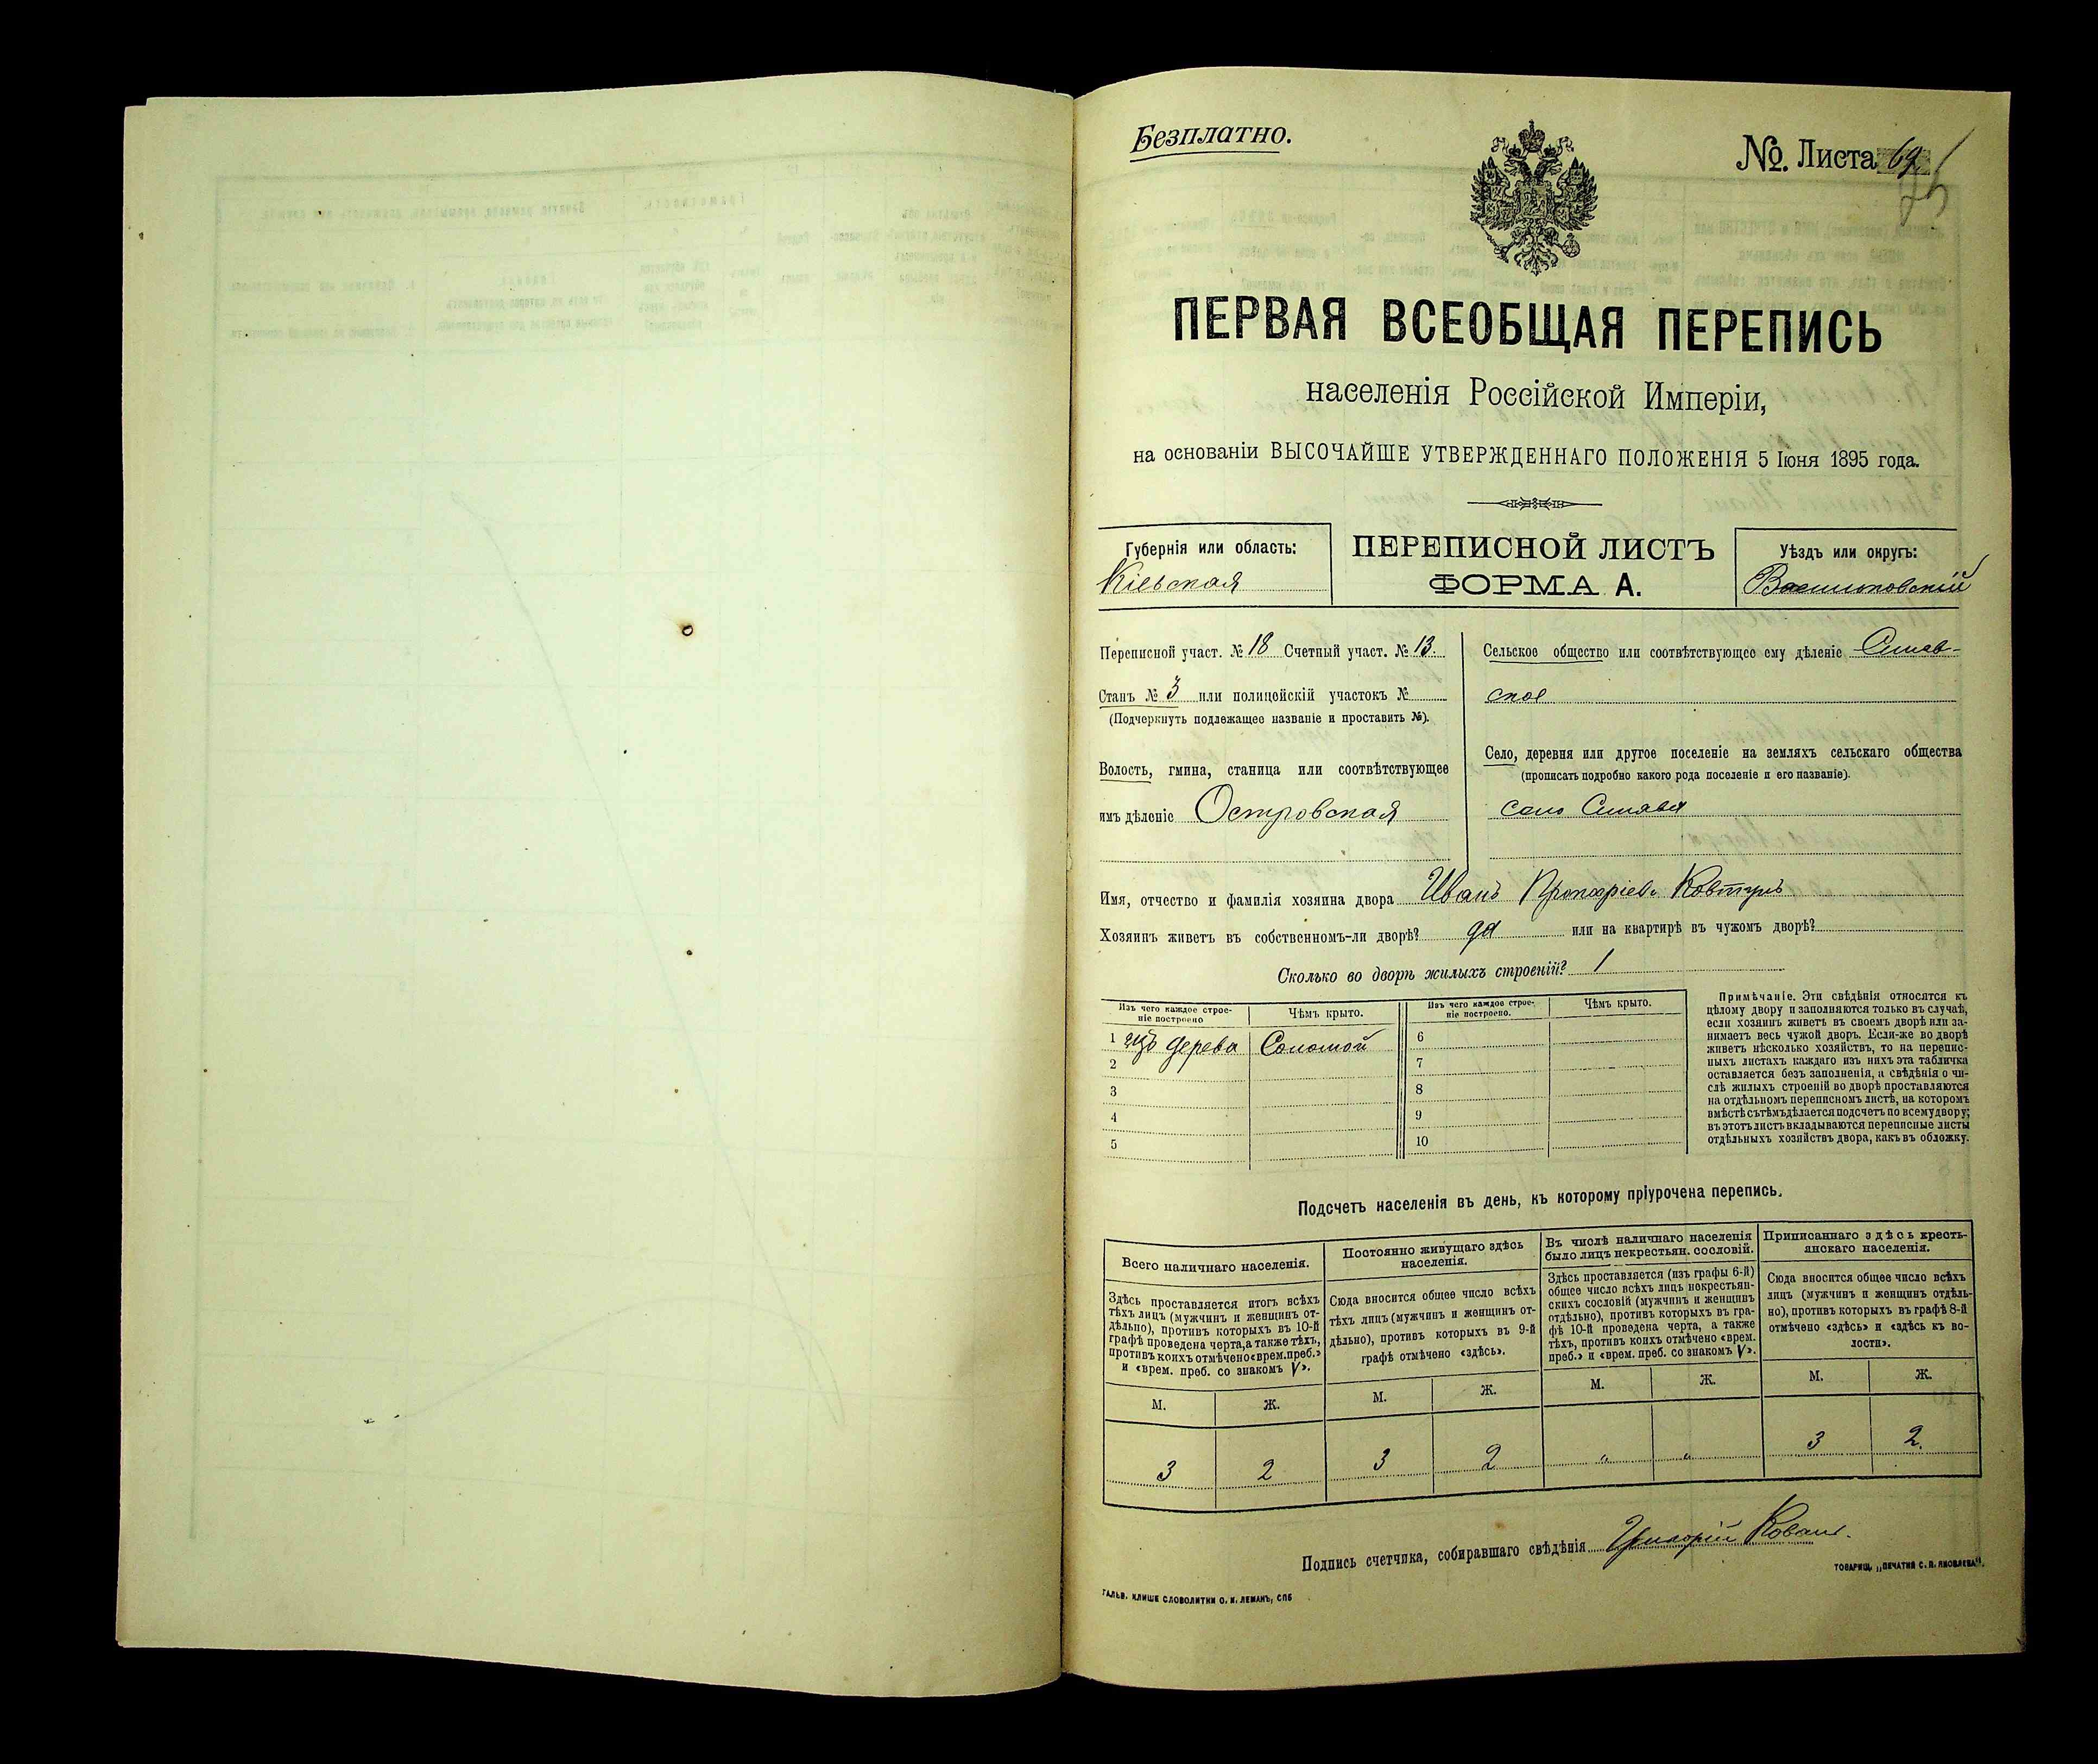 Безплатно.
№. Листа 69
25
ПЕРВАЯ ВСЕОБЩАЯ ПЕРЕПИСЬ
населенія Россійской Имперіи,
на основаніи ВЫСОЧАЙШЕ УТВЕРЖДЕННАГО ПОЛОЖЕНІЯ 5 Іюня 1895 года.
Губернія или область:
Кіевская
ПЕРЕПИСНОЙ ЛИСТЪ
ФОРМА А.
Уѣздъ или округъ:
Васильковскій
Переписной участ. № 18 Счетный участ. № 13.
Станъ № 3 или полицейскій участокъ №
(Подчеркнуть подлежащее названіе и проставить №).
Волость, гмина, станица или соотвѣтствующее
имъ дѣленіе Островская
Сельское общество или соотвѣтствующее ему дѣленіе Синяв-
ское
Село, деревня или другое поселеніе на земляхъ сельскаго общества
(прописать подробно какого рода поселеніе и его названіе).
село Синява
Имя, отчество и фамилія хозяина двора Иванъ Прокоріевъ Ковтунъ
Хозяинъ живетъ въ собственномъ-ли дворѣ? да или на квартирѣ въ чужомъ дворѣ?
Сколько во дворѣ жилыхъ строеній? 1
Изъ чего каждое строе-
ніе построено
Чѣмъ крыто.
Изъ чего каждое строе-
ніе построено.
Чѣмъ крыто.
1 изъ дерева Соломой 6
2 7
3 8
4 9
5 10
Примѣчаніе. Эти свѣдѣнія относятся къ
цѣлому двору и заполняются только въ случаѣ,
если хозяинъ живетъ въ своемъ дворѣ или за-
нимаетъ весь чужой дворъ. Если-же во дворѣ
живетъ нѣсколько хозяйствъ, то на перепис-
ныхъ листахъ каждаго изъ нихъ эта табличка
оставляется безъ заполненія, а свѣдѣнія о чи-
слѣ жилыхъ строеній во дворѣ проставляются
на отдѣльномъ переписномъ листѣ, на которомъ
вмѣстѣ съ тѣмъ дѣлается подсчетъ по всему двору;
въ этотъ листъ вкладываются переписные листы
отдѣльныхъ хозяйствъ двора, какъ въ обложку.
Подсчетъ населенія въ день, къ которому пріурочена перепись.
Всего наличнаго населенія.
Здѣсь проставляется итогъ всѣхъ
тѣхъ лицъ (мужчинъ и женщинъ от-
дѣльно), противъ которыхъ въ 10-й
графѣ проведена черта, а также тѣхъ,
противъ коихъ отмѣчено «врем. преб.»
и «врем. преб. со знакомъ V».
М. Ж.
3 2
Постоянно живущаго здѣсь
населенія.
Сюда вносится общее число всѣхъ
тѣхъ лицъ (мужчинъ и женщинъ от-
дѣльно), противъ которыхъ въ 9-й
графѣ отмѣчено «здѣсь».
М. Ж.
3 2
Въ числѣ наличнаго населенія
было лицъ некрестьян. сословій.
Здѣсь проставляется (изъ графы 6-й)
общее число всѣхъ лицъ некрестьян-
скихъ сословій (мужчинъ и женщинъ
отдѣльно), противъ которыхъ въ гра-
фѣ 10-й проведена черта, а также
тѣхъ, противъ коихъ отмѣчено «врем.
преб.» и «врем. преб. со знакомъ V».
М. Ж.
" "
Приписаннаго здѣсь кресть-
янскаго населенія.
Сюда вносится общее число всѣхъ
лицъ (мужчинъ и женщинъ отдѣль-
но), противъ которыхъ въ графѣ 8-й
отмѣчено «здѣсь» и «здѣсь къ во-
лости».
М. Ж.
3 2.
Подпись счетчика, собиравшаго свѣдѣнія Григорій
ГАЛЬВ. КЛИШЕ СЛОВОЛИТНИ О. И. ЛЕМАНЪ, СПБ
ТОВАРИЩ. „ПЕЧАТНЯ С. П. ЯКОВЛЕВА".